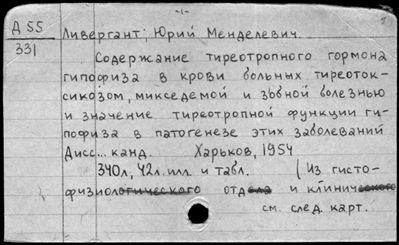 -1-
Д 55
331
Ливергант, Юрий Менделевич.
Содержание тиреотропного гормона
гипофиза в крови больных тиреоток-
сикозом, микседемой и зобной болезнью
и значение тиреотропной функции ги-
пофиза в патогенезе этих заболеваний
Дисс... канд. Харьков, 1954
340л, 42л. илл. и табл. (Из гисто-
физиологического отдела и клинического
см. след. карт.